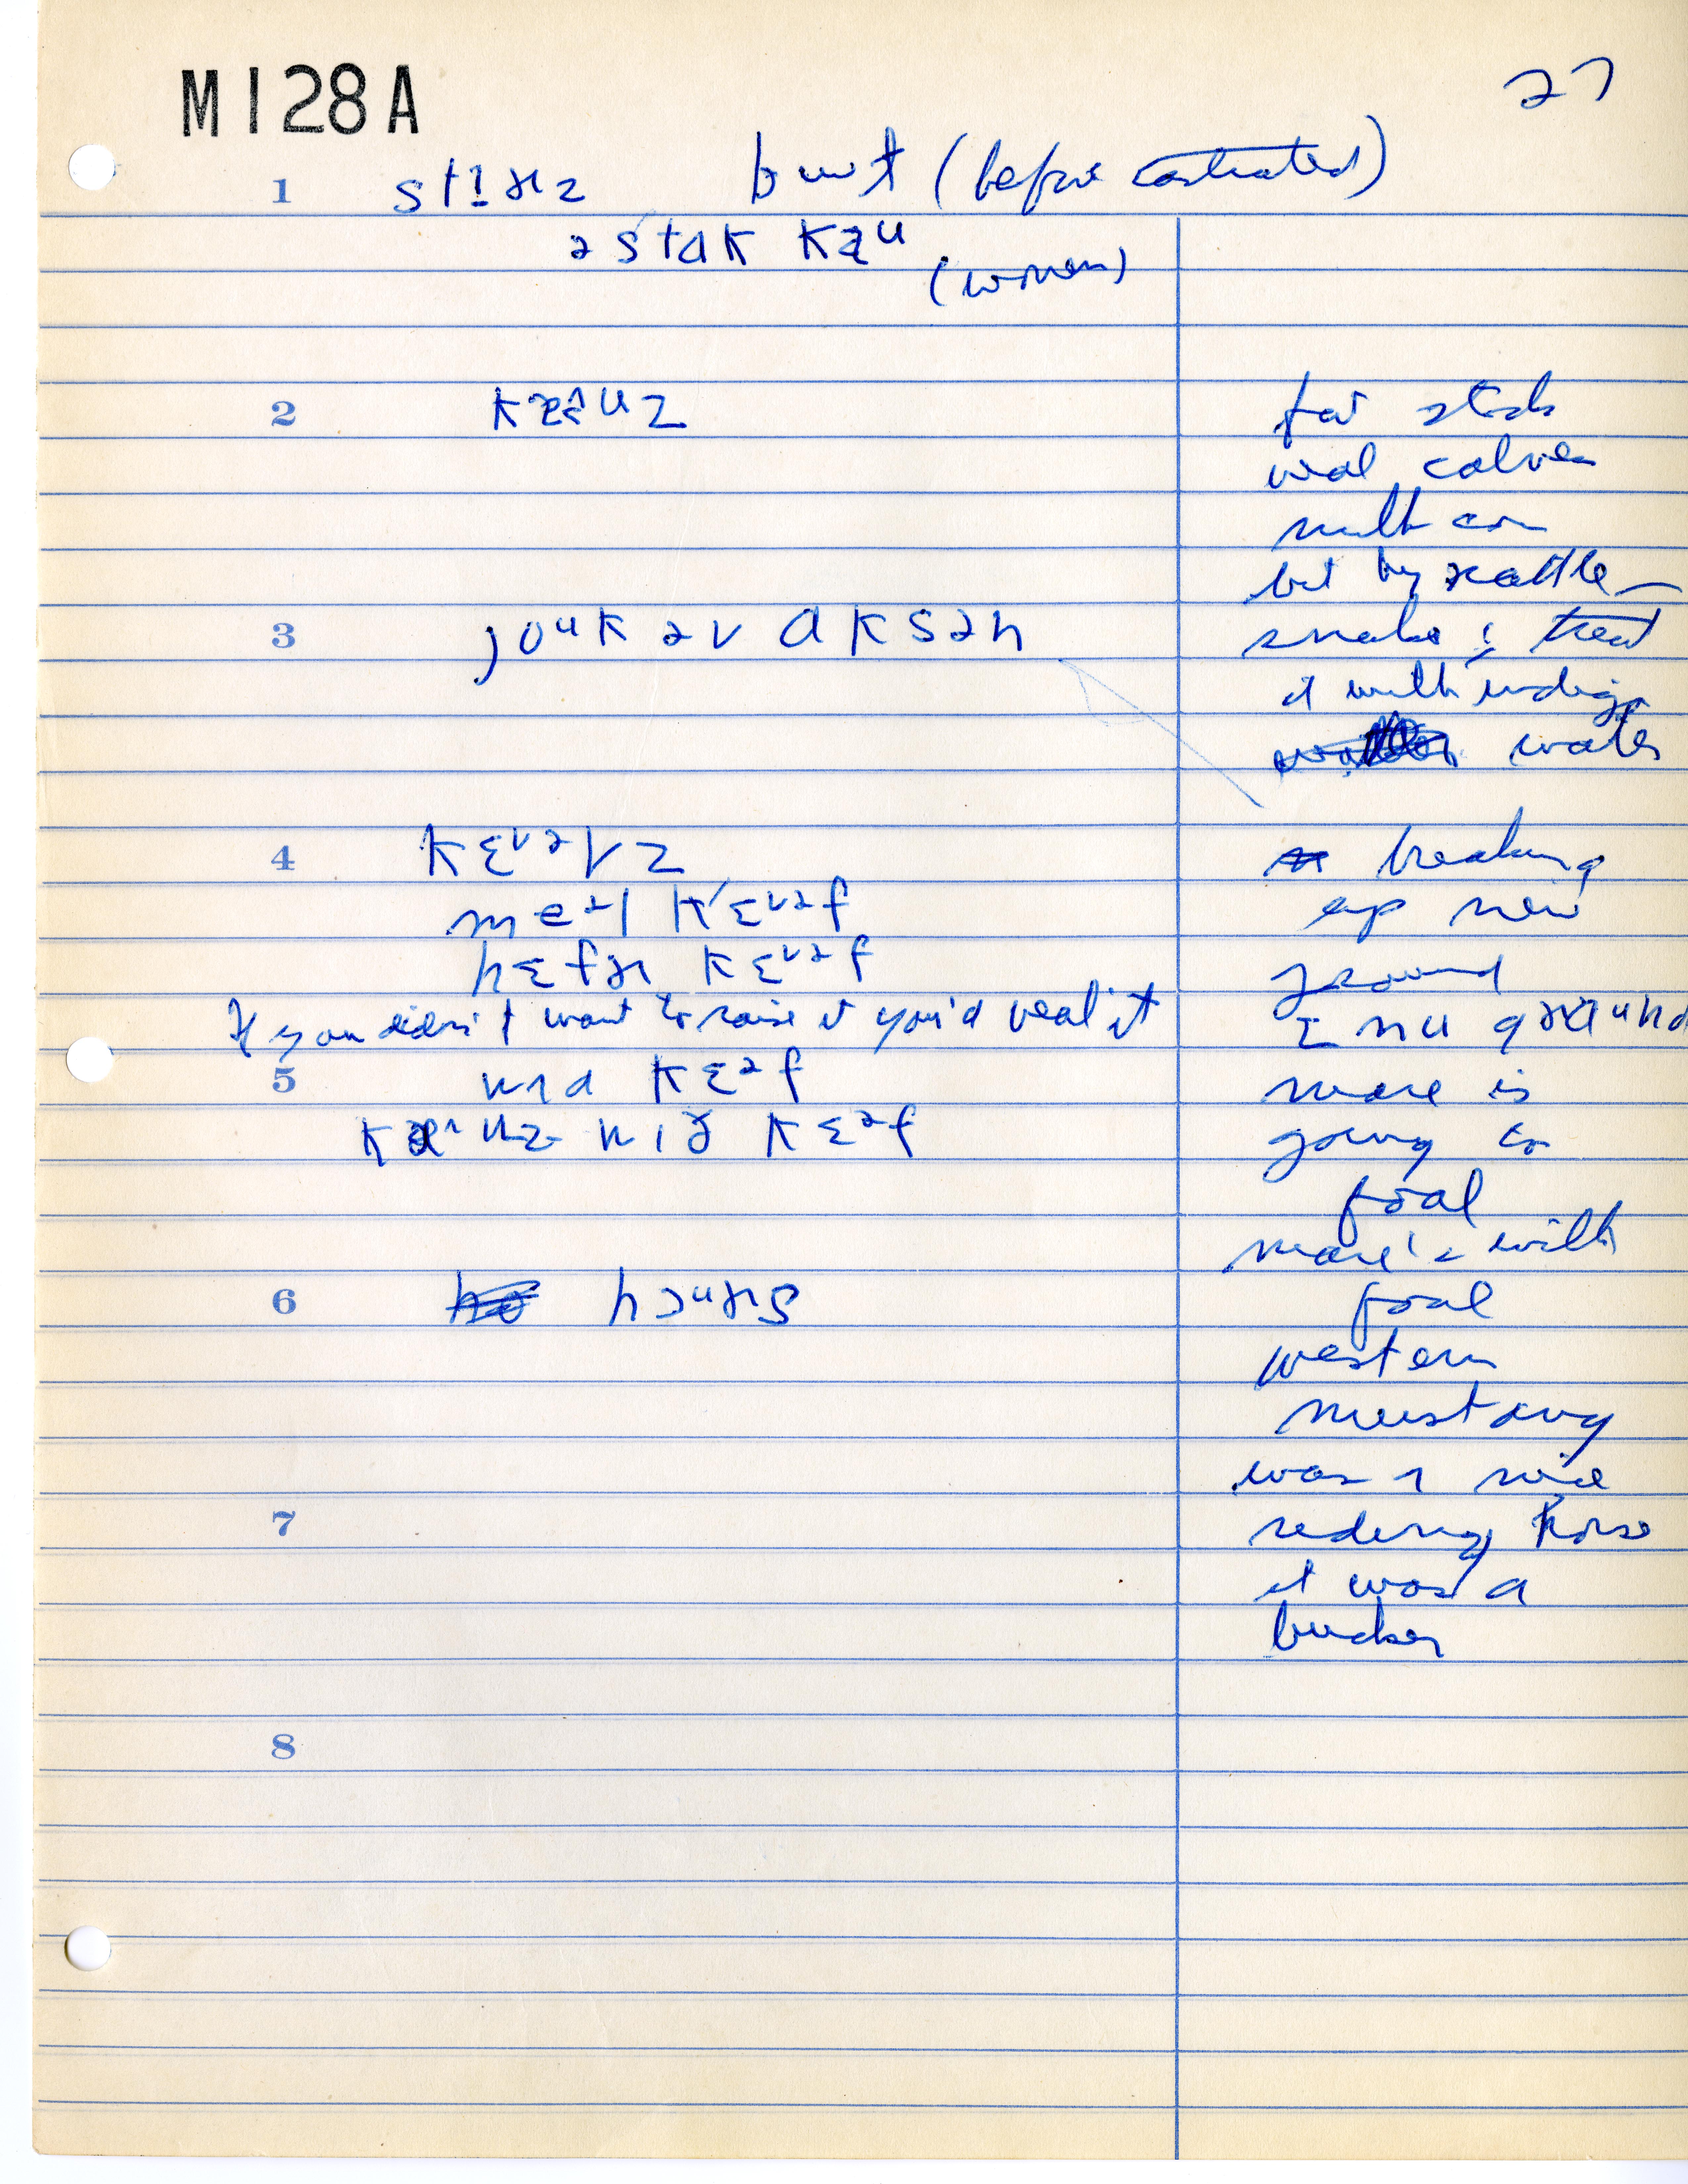 M128A
27
1 stɪɚz burt (before castrated)
ə stɑk kaᵘ
(women)
2 kæᵘz
3 joᵘk əv ɑksən
4 kɛᵛᵊvz
meᵊl kɛᵛᵊf
hɛfɚ kɛᵛᵊf
If you didn't want to raise it you'd veal it
5 kɛᵊf
kɛᵊf
6 hɔᵘɚs
7
8
for stock
veal calves
milk cow
bit by rattle–
snake & treat
it with indigo
water
breaking
up new
ground
mare is
going to
foal
mare's with
foal
western
mustang
was a nice
riding horse
it was a
bucker